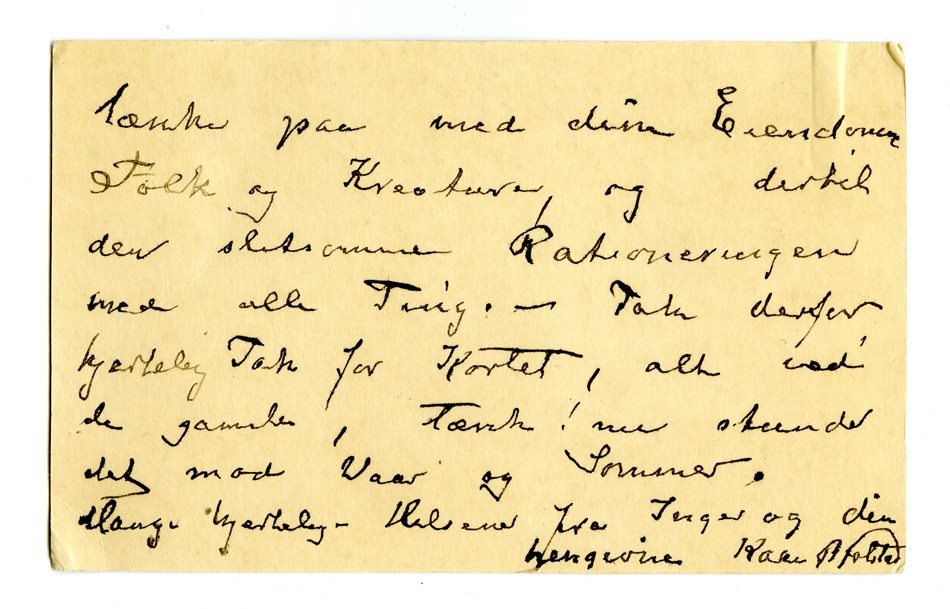 tænke paa med dine Eiendomme
Folk og Kreature, og dertil
den slitsomme Rationeringen
med alle Ting. – Tak derfor
hjertelig Tak for Kortet, alt ved
de gamle, tænk! nu stunder
det mod Vaar og Sommer.
Mange hjertelige Hilsener fra Inger og din
hengivne Kaare